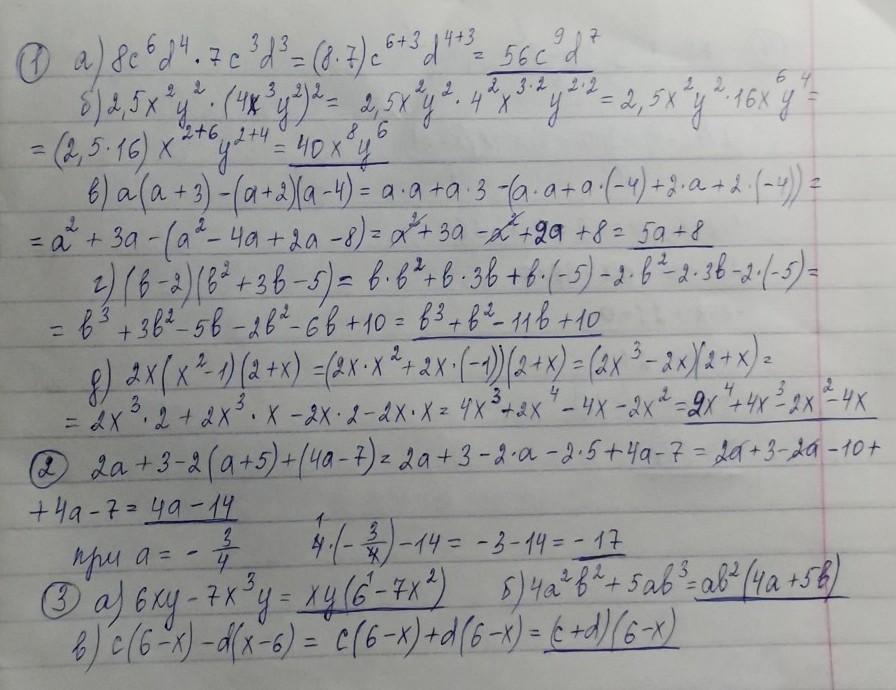 ① а) 8c⁶d⁴ · 7c³d³ = (8·7)c⁶⁺³d⁴⁺³ = 56c⁹d⁷
б) 2,5x²y² · (4x³y²)² = 2,5x²y² · 4²x³·²y²·² = 2,5x²y² · 16x⁶y⁴ =
= (2,5·16) x²⁺⁶y²⁺⁴ = 40x⁸y⁶
в) a(a+3) - (a+2)(a-4) = a·a + a·3 - (a·a + a·(-4) + 2·a + 2·(-4)) =
= a² + 3a - (a² - 4a + 2a - 8) = a² + 3a - a² + 2a + 8 = 5a + 8
г) (b-2)(b² + 3b - 5) = b·b² + b·3b + b·(-5) - 2·b² - 2·3b - 2·(-5) =
= b³ + 3b² - 5b - 2b² - 6b + 10 = b³ + b² - 11b + 10
д) 2x(x²-1)(2+x) = (2x·x² + 2x·(-1))(2+x) = (2x³ - 2x)(2+x) =
= 2x³·2 + 2x³·x - 2x·2 - 2x·x = 4x³ + 2x⁴ - 4x - 2x² = 2x⁴ + 4x³ - 2x² - 4x
② 2a + 3 - 2(a+5) + (4a-7) = 2a + 3 - 2·a - 2·5 + 4a - 7 = 2a + 3 - 2a - 10 +
+ 4a - 7 = 4a - 14
при a = - 3/4 ¹4·(- 3/4) - 14 = -3 - 14 = - 17
③ а) 6xy - 7x³y = xy(6 - 7x²) б) 4a²b² + 5ab³ = ab²(4a + 5b)
в) c(6-x) - d(x-6) = c(6-x) + d(6-x) = (c+d)(6-x)